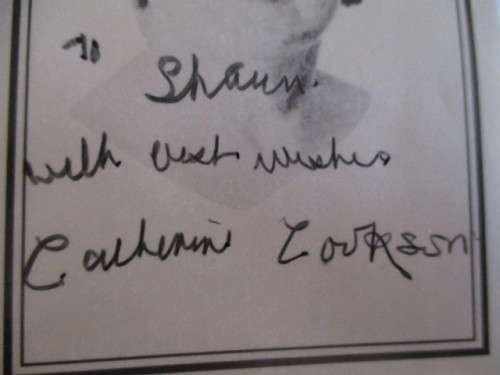 To
Shaun.
with best wishes
Catherine Cookson